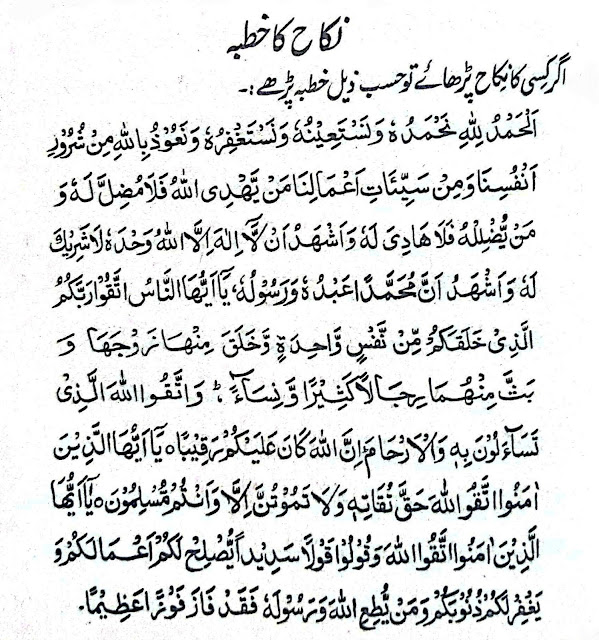 نکاح کا خطبہ
اگر کسی کا نکاح پڑھائے تو حسب ذیل خطبہ پڑھے :۔
اَلْحَمْدُ لِلّٰهِ نَحْمَدُهٗ وَنَسْتَعِيْنُهٗ وَنَسْتَغْفِرُهٗ وَنَعُوْذُ بِاللّٰهِ مِنْ شُرُوْرِ
اَنْفُسِنَا وَمِنْ سَيِّئَاتِ اَعْمَالِنَا مَنْ يَّهْدِى اللّٰهُ فَلَا مُضِلَّ لَهٗ وَ
مَنْ يُّضْلِلْهُ فَلَا هَادِىَ لَهٗ وَاَشْهَدُ اَنْ لَّا اِلٰهَ اِلَّا اللّٰهُ وَحْدَهٗ لَا شَرِيْكَ
لَهٗ وَاَشْهَدُ اَنَّ مُحَمَّدًا عَبْدُهٗ وَرَسُوْلُهٗ، يٰٓاَيُّهَا النَّاسُ اتَّقُوْا رَبَّكُمُ
الَّذِىْ خَلَقَكُمْ مِّنْ نَّفْسٍ وَّاحِدَةٍ وَّخَلَقَ مِنْهَا زَوْجَهَا وَ
بَثَّ مِنْهُمَا رِجَالًا كَثِيْرًا وَّنِسَآءً ؕ وَاتَّقُوا اللّٰهَ الَّذِىْ
تَسَآءَلُوْنَ بِهٖ وَالْاَرْحَامَ ؕ اِنَّ اللّٰهَ كَانَ عَلَيْكُمْ رَقِيْبًا ه يٰٓاَيُّهَا الَّذِيْنَ
اٰمَنُوا اتَّقُوا اللّٰهَ حَقَّ تُقَاتِهٖ وَلَا تَمُوْتُنَّ اِلَّا وَاَنْتُمْ مُّسْلِمُوْنَ ه يٰٓاَيُّهَا
الَّذِيْنَ اٰمَنُوا اتَّقُوا اللّٰهَ وَقُوْلُوْا قَوْلًا سَدِيْدًا يُّصْلِحْ لَكُمْ اَعْمَالَكُمْ وَ
يَغْفِرْ لَكُمْ ذُنُوْبَكُمْ وَمَنْ يُّطِعِ اللّٰهَ وَرَسُوْلَهٗ فَقَدْ فَازَ فَوْزًا عَظِيْمًا۔